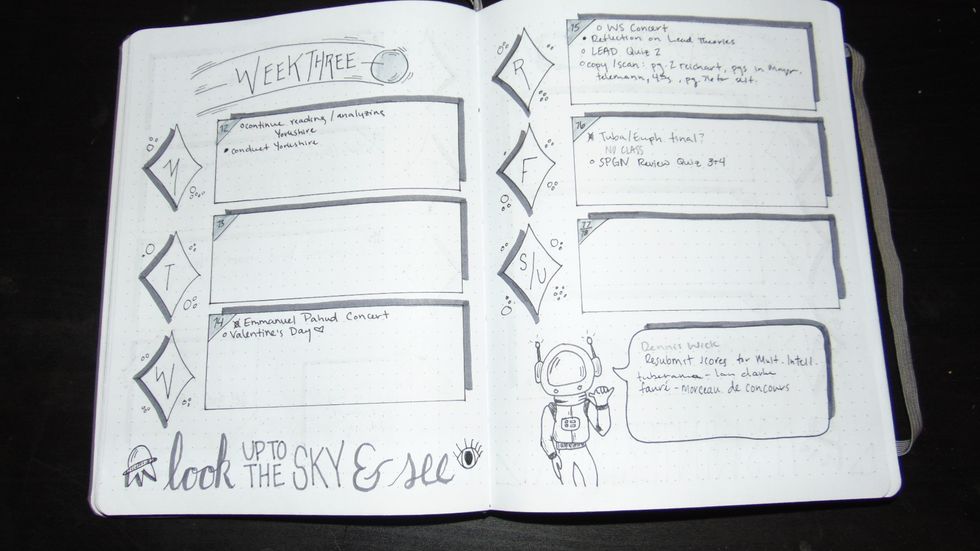 WEEK THREE
M
12
continue reading / analyzing
Yorkshire
conduct Yorkshire
T
13
W
14
Emmanuel Pahud Concert
Valentine's Day ♡
look UP TO THE SKY & see
R
15
WS Concert
Reflection on Lead Theories
LEAD Quiz 2
copy/scan: pg. 2 reichart, pgs in
telemann, 453, pg.
F
16
Tuba/Euph final?
NO CLASS
SPGN Review Quiz 3+4
S/U
17
18
Dennis Wick
Resubmit scores for Mult. Intell.
tuberama - Ian clarke
fauré - Morceau de concours